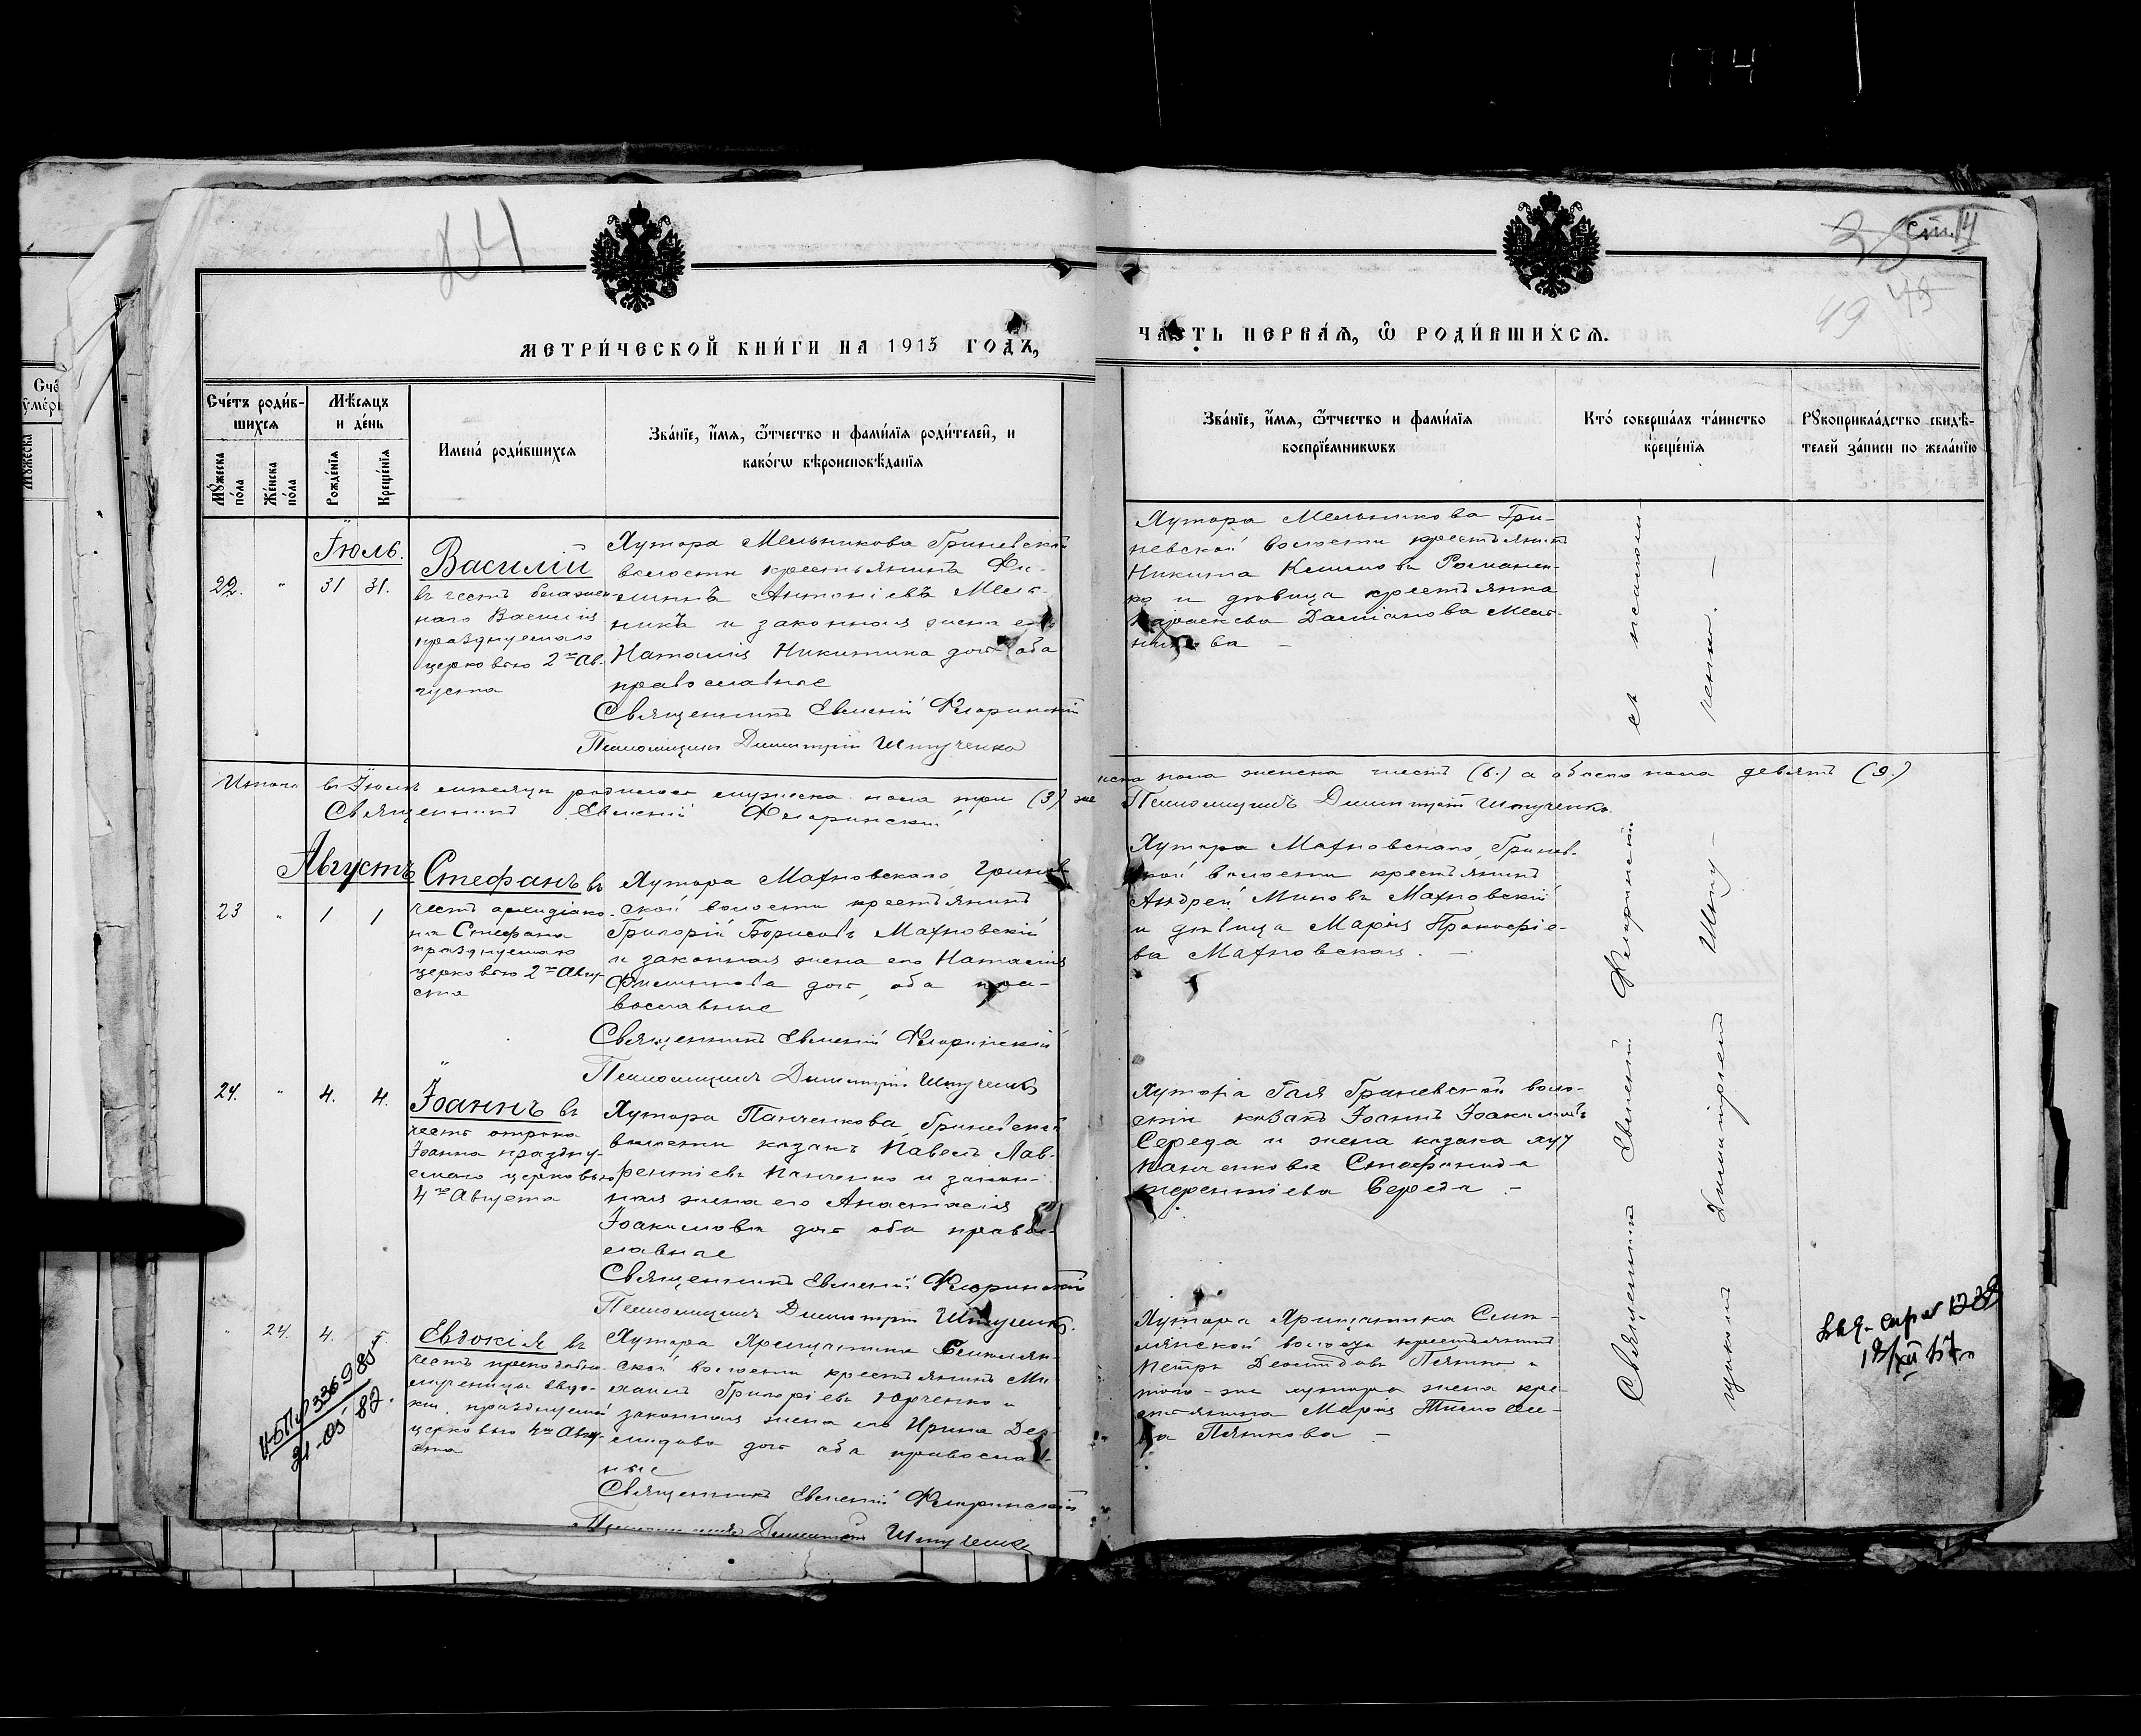 174
24
стр. 14
49
45
МЕТРИ́ЧЕСКОЙ КНИ́ГИ НА 1913 ГОДЪ,
ЧА́СТЬ ПЕРВА́Я, Ѡ РОДИ́ВШИХСЯ.
Сче́тъ роди́в-
шихся
Мѣ́сяцъ
и де́нь
Му́жеска по́ла
Же́нска по́ла
Рожде́нія
Креще́нія
Имена́ роди́вшихся
Зва́нїе, и́мя, ѻ҆́тчество и фами́лїя роди́телей, и
како́гѡ вѣроисповѣ́данїя
Зва́нїе, и́мя, ѻ҆́тчество и фами́лїя
воспрїе́мникѡвъ
Кто́ соверша́лъ та́инство
креще́нїя
Рꙋкоприкла́дство свидѣ́-
телей за́писи по жела́нїю
Іюль.
22. " 31 31.
Василій
въ честь блажен
наго Василія
празднуемаго
церковью 2го Ав.
густа
Хутора Мельникова Гриневской
волости крестьянинъ Фи-
липпъ Антоніевъ Мель-
никъ и законная жена его
Наталія Никитина дочь оба
православные
Священникъ Евменій Флоринскій
Псаломщикъ Димитрій Штученко
Хутора Мельникова Гри-
невской волости крестьянинъ
Никита Климовъ Романен-
ко и дѣвица крестьянка
Параскева Даміанова Мель-
никова —
Итого въ Іюлѣ мѣсяцѣ родилось мужеска пола три (3) же
нска пола женска шесть (6.) а обоего пола девять (9.)
Священникъ Евменій Флоринскій
Псаломщикъ Димитрій Штученко.
Августъ
23 " 1 1
Стефанъ въ
честь архидіако-
на Стефана
празднуемаго
церковью 2го Авгу-
ста
Хутора Махновскаго Гринев
ской волости крестьянинъ
Григорій Борисовъ Махновскій
и законная жена его Наталія
Филиппова дочь, оба пра-
вославные
Священникъ Евменій Флоринскій
Псаломщикъ Димитрій Штученко
Хутора Махновскаго, Гринев-
ской волости крестьянинъ
Андрей Миновъ Махновскій
и дѣвица Марія Прокофіе-
ва Махновская. —
24. " 4. 4.
Іоаннъ въ
честь отрока
Іоанна праздну-
емаго церковью
4го Августа
Хутора Панченкова Гриневской
волости казакъ Павелъ Лав-
рентіевъ Панченко и закон-
ная жена его Анастасія
Іоакимова дочь оба право-
славные
Священникъ Евменій Флоринскій
Псаломщикъ Димитрій Штученко.
Хутора Галя Гриневской воло-
сти казакъ Іоаннъ Іоакимовъ
Середа и жена казака хут
Панченкова Стефанида
Терентіева Середа. —
" 24. 4. 5.
Евдокія въ
честь преподобно
мученицы Евдо-
кіи, празднуемой
церковью 4го Авгу-
ста
ской волости крестьянинъ Ми
хаилъ Григоріевъ Юрченко и
законная жена его Ирина Де-
мидова дочь оба православ-
ные
Священникъ Евменій Флоринскій
Псаломщикъ Димитрій Штученко
мянской волости крестьянинъ
Петръ Демидовъ Пятко и
того-же хутора жена кре-
стьянина Марія
Пятикова —
Священникъ Евменій Флоринскій съ псалом-
щикомъ Димитріемъ Штученко. —
336985
21-05 82.